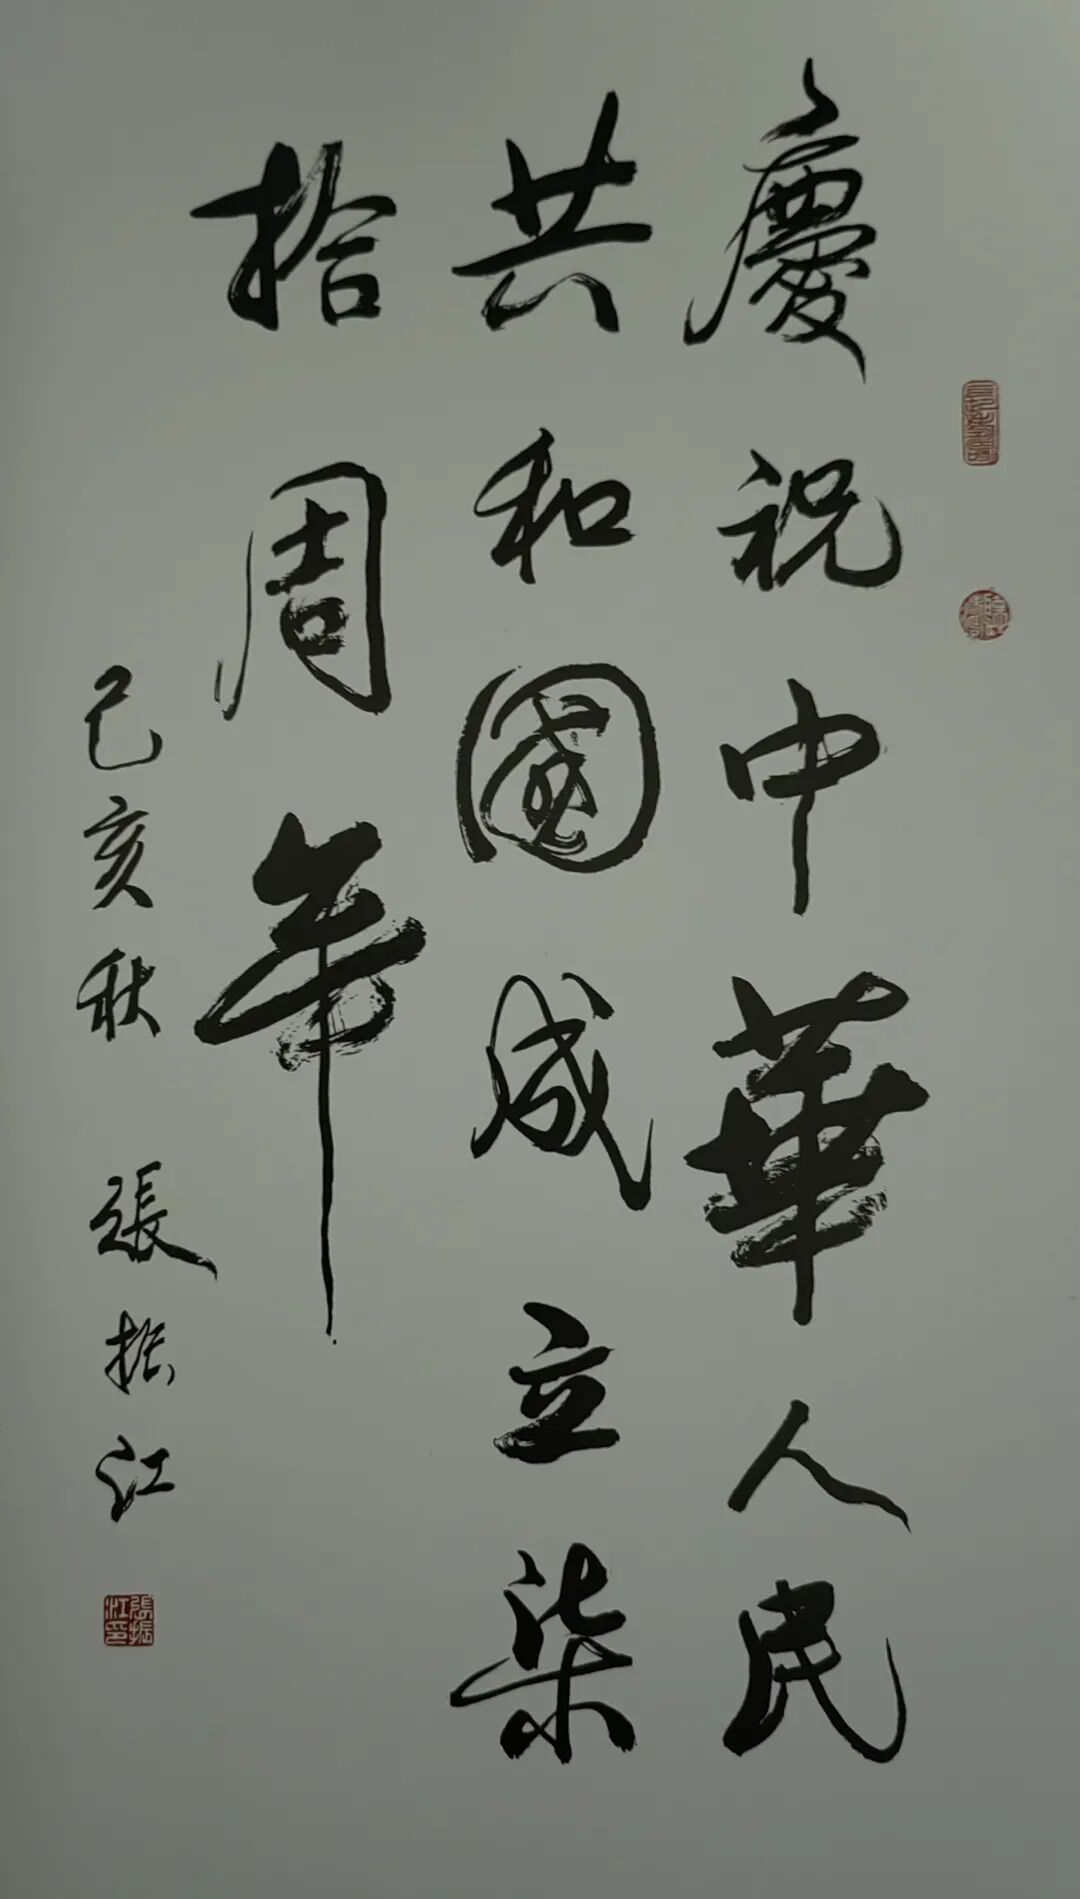 慶祝中華人民
共和國成立柒
拾周年
己亥秋 張振江
張振江印